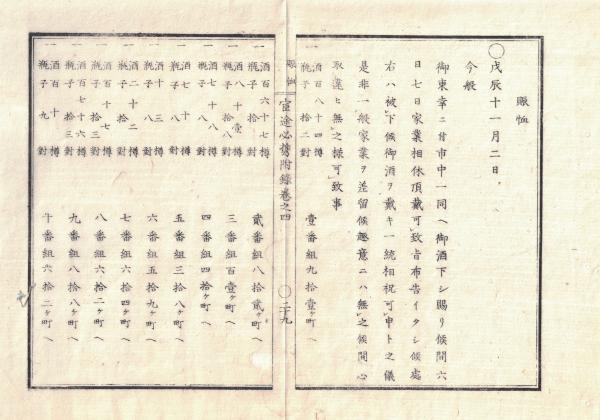 賑恤
〇戊辰十一月二日
今般
御東幸ニ付市中一同ヘ御酒下シ賜リ候間六
日七日家業相休頂戴可致旨布告イタシ候處
右ハ被下候御酒ヲ戴キ一統相祝可申トノ儀
是非一般家業ヲ差留候趣意ニハ無之候間心
取違ヒ無之様可致事
一酒百八十四樽
瓶子拾二對 壹番組九拾壹ヶ町ヘ
賑恤 官途必携附録巻之四 〇二十九
一酒百六十七樽
瓶子拾對 貳番組八拾貳ヶ町ヘ
瓶子拾八對 三番組百壹ヶ町ヘ
一酒七十八樽
瓶子八對 四番組四拾ヶ町ヘ
一酒七十樽
瓶子八對 五番組三拾八ヶ町ヘ
一酒百二十二樽
瓶子拾對 七番組六拾四ヶ町ヘ
瓶子拾三對 八番組六拾二ヶ町ヘ
一酒百七十六樽
瓶子拾三對 九番組八拾八ヶ町ヘ
一酒百十樽
瓶子九對 十番組六拾二ヶ町ヘ